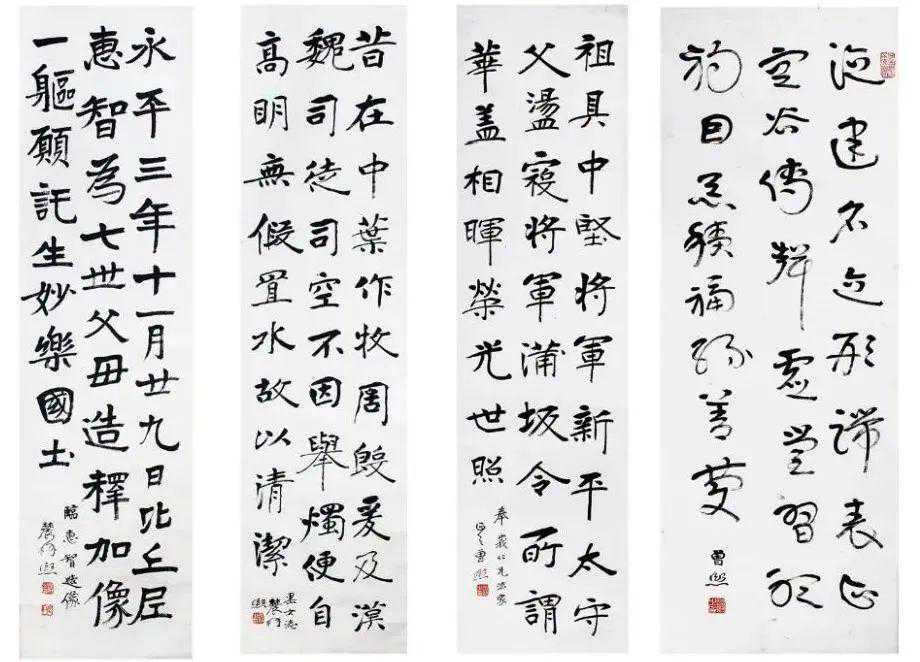 德建名立形端表正
空谷傳聲虛堂習聽
禍因惡積福緣善慶
曾熙
祖具中堅將軍新平太守
父盪寇將軍蒲坂令所謂
華蓋相暉榮光世照
曾熙
昔在中葉作牧周殷爰及漢
魏司徒司空不因舉燭便自
高明無假置水故以清潔
黑女志
農髯
熙
永平三年十一月廿九日比丘尼
惠智為七世父母造釋加像
一軀願託生妙樂國土
臨惠智造像
農髯熙